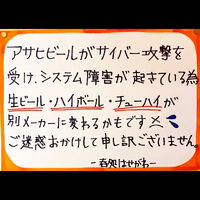 アサヒビールがサイバー攻撃を
受け、システム障害が起きている為
生ビール・ハイボール・チューハイが
別メーカーに変わるかもです
ご迷惑おかけして申し訳ございません。
-呑処はせがわ-